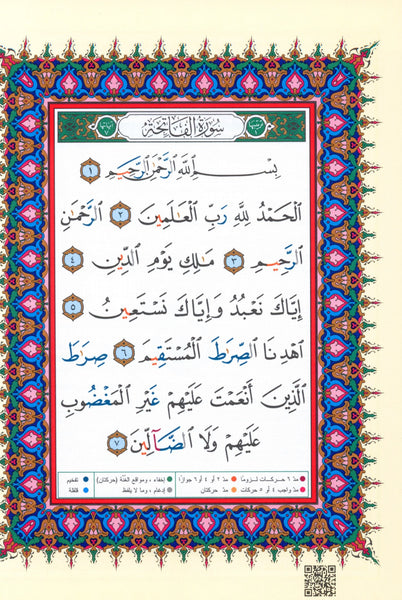 سُورَةُ الفَاتِحَةِ
بِسْمِ ٱللَّهِ ٱلرَّحْمَٰنِ ٱلرَّحِيمِ ١
ٱلْحَمْدُ لِلَّهِ رَبِّ ٱلْعَٰلَمِينَ ٢ ٱلرَّحْمَٰنِ
ٱلرَّحِيمِ ٣ مَٰلِكِ يَوْمِ ٱلدِّينِ ٤
إِيَّاكَ نَعْبُدُ وَإِيَّاكَ نَسْتَعِينُ ٥
ٱهْدِنَا ٱلصِّرَٰطَ ٱلْمُسْتَقِيمَ ٦ صِرَٰطَ
ٱلَّذِينَ أَنْعَمْتَ عَلَيْهِمْ غَيْرِ ٱلْمَغْضُوبِ
عَلَيْهِمْ وَلَا ٱلضَّآلِّينَ ٧
مدّ ٦ حركات لزوماً مدّ ٢ أو ٤ أو ٦ جوازاً إخفاء، ومواقع الغنّة (حركتان) تفخيم
مدّ واجب ٤ أو ٥ حركات مدّ حركتان إدغام، وما لا يلفظ قلقلة